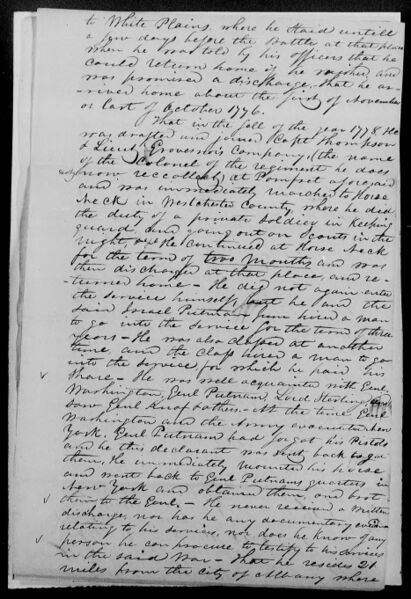 to White Plains, where he staid untill
a few days before the Battle at that place
when he was told by his officers that he
could return home if he wished, and
was promised a discharge, that he ar-
rived home about the first of November
or last of October 1776.
That in the fall of the year 1778, He
was drafted and joined Capt Thompson
& Lieut Grovesnor's Company (the name
of the Colonel of the regiment he does
not now recollect) at Pomfret aforesaid
and was immediately marched to Horse
Neck in Westchester County, where he did
the duty of a private Soldier in keeping
guard, and going out on Scouts in the
night, He continued at Horse Neck
for the term of two months and was
then discharged at that place, and re-
turned home - He did not again enter
the service himself, but he and the
said Israel Putnam Junr hired a man
to go into the service for the term of three
years - He was also classed at another
time and the Class hired a man to go
into the service for which he paid his
share - He was well acquainted with Genl.
Washington, Genl Putnam, Lord Sterling and
saw Genl Knox & others - At the time Genl
Washington and the Army evacuated New
York, Genl Putnam had forgot his Pistols
and he this declarant was sent back to get
them, He immediately mounted his horse
and went back to Genl Putnams quarters in
New York and obtained them, and brot
them to the Genl. - He never received a written
discharge, nor has he any documentary evidence
relating to his services, nor does he know of any
person he can procure to testify to his services
in the said War - That he resides 21
miles from the City of Albany where